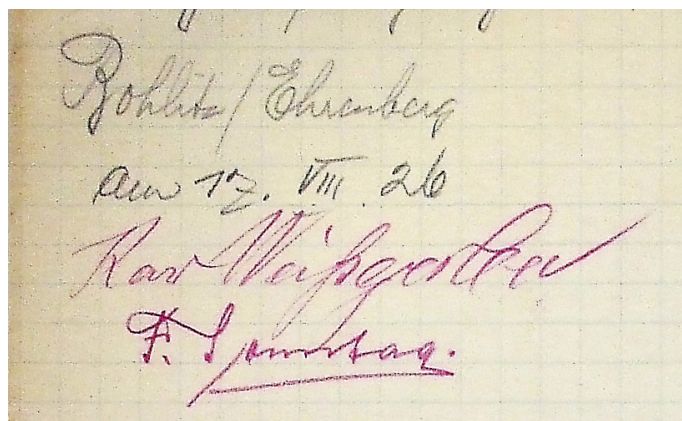 Böhlitz/Ehrenberg
am 17. VIII. 26
Karl Weißgerber
F. Sonntag.